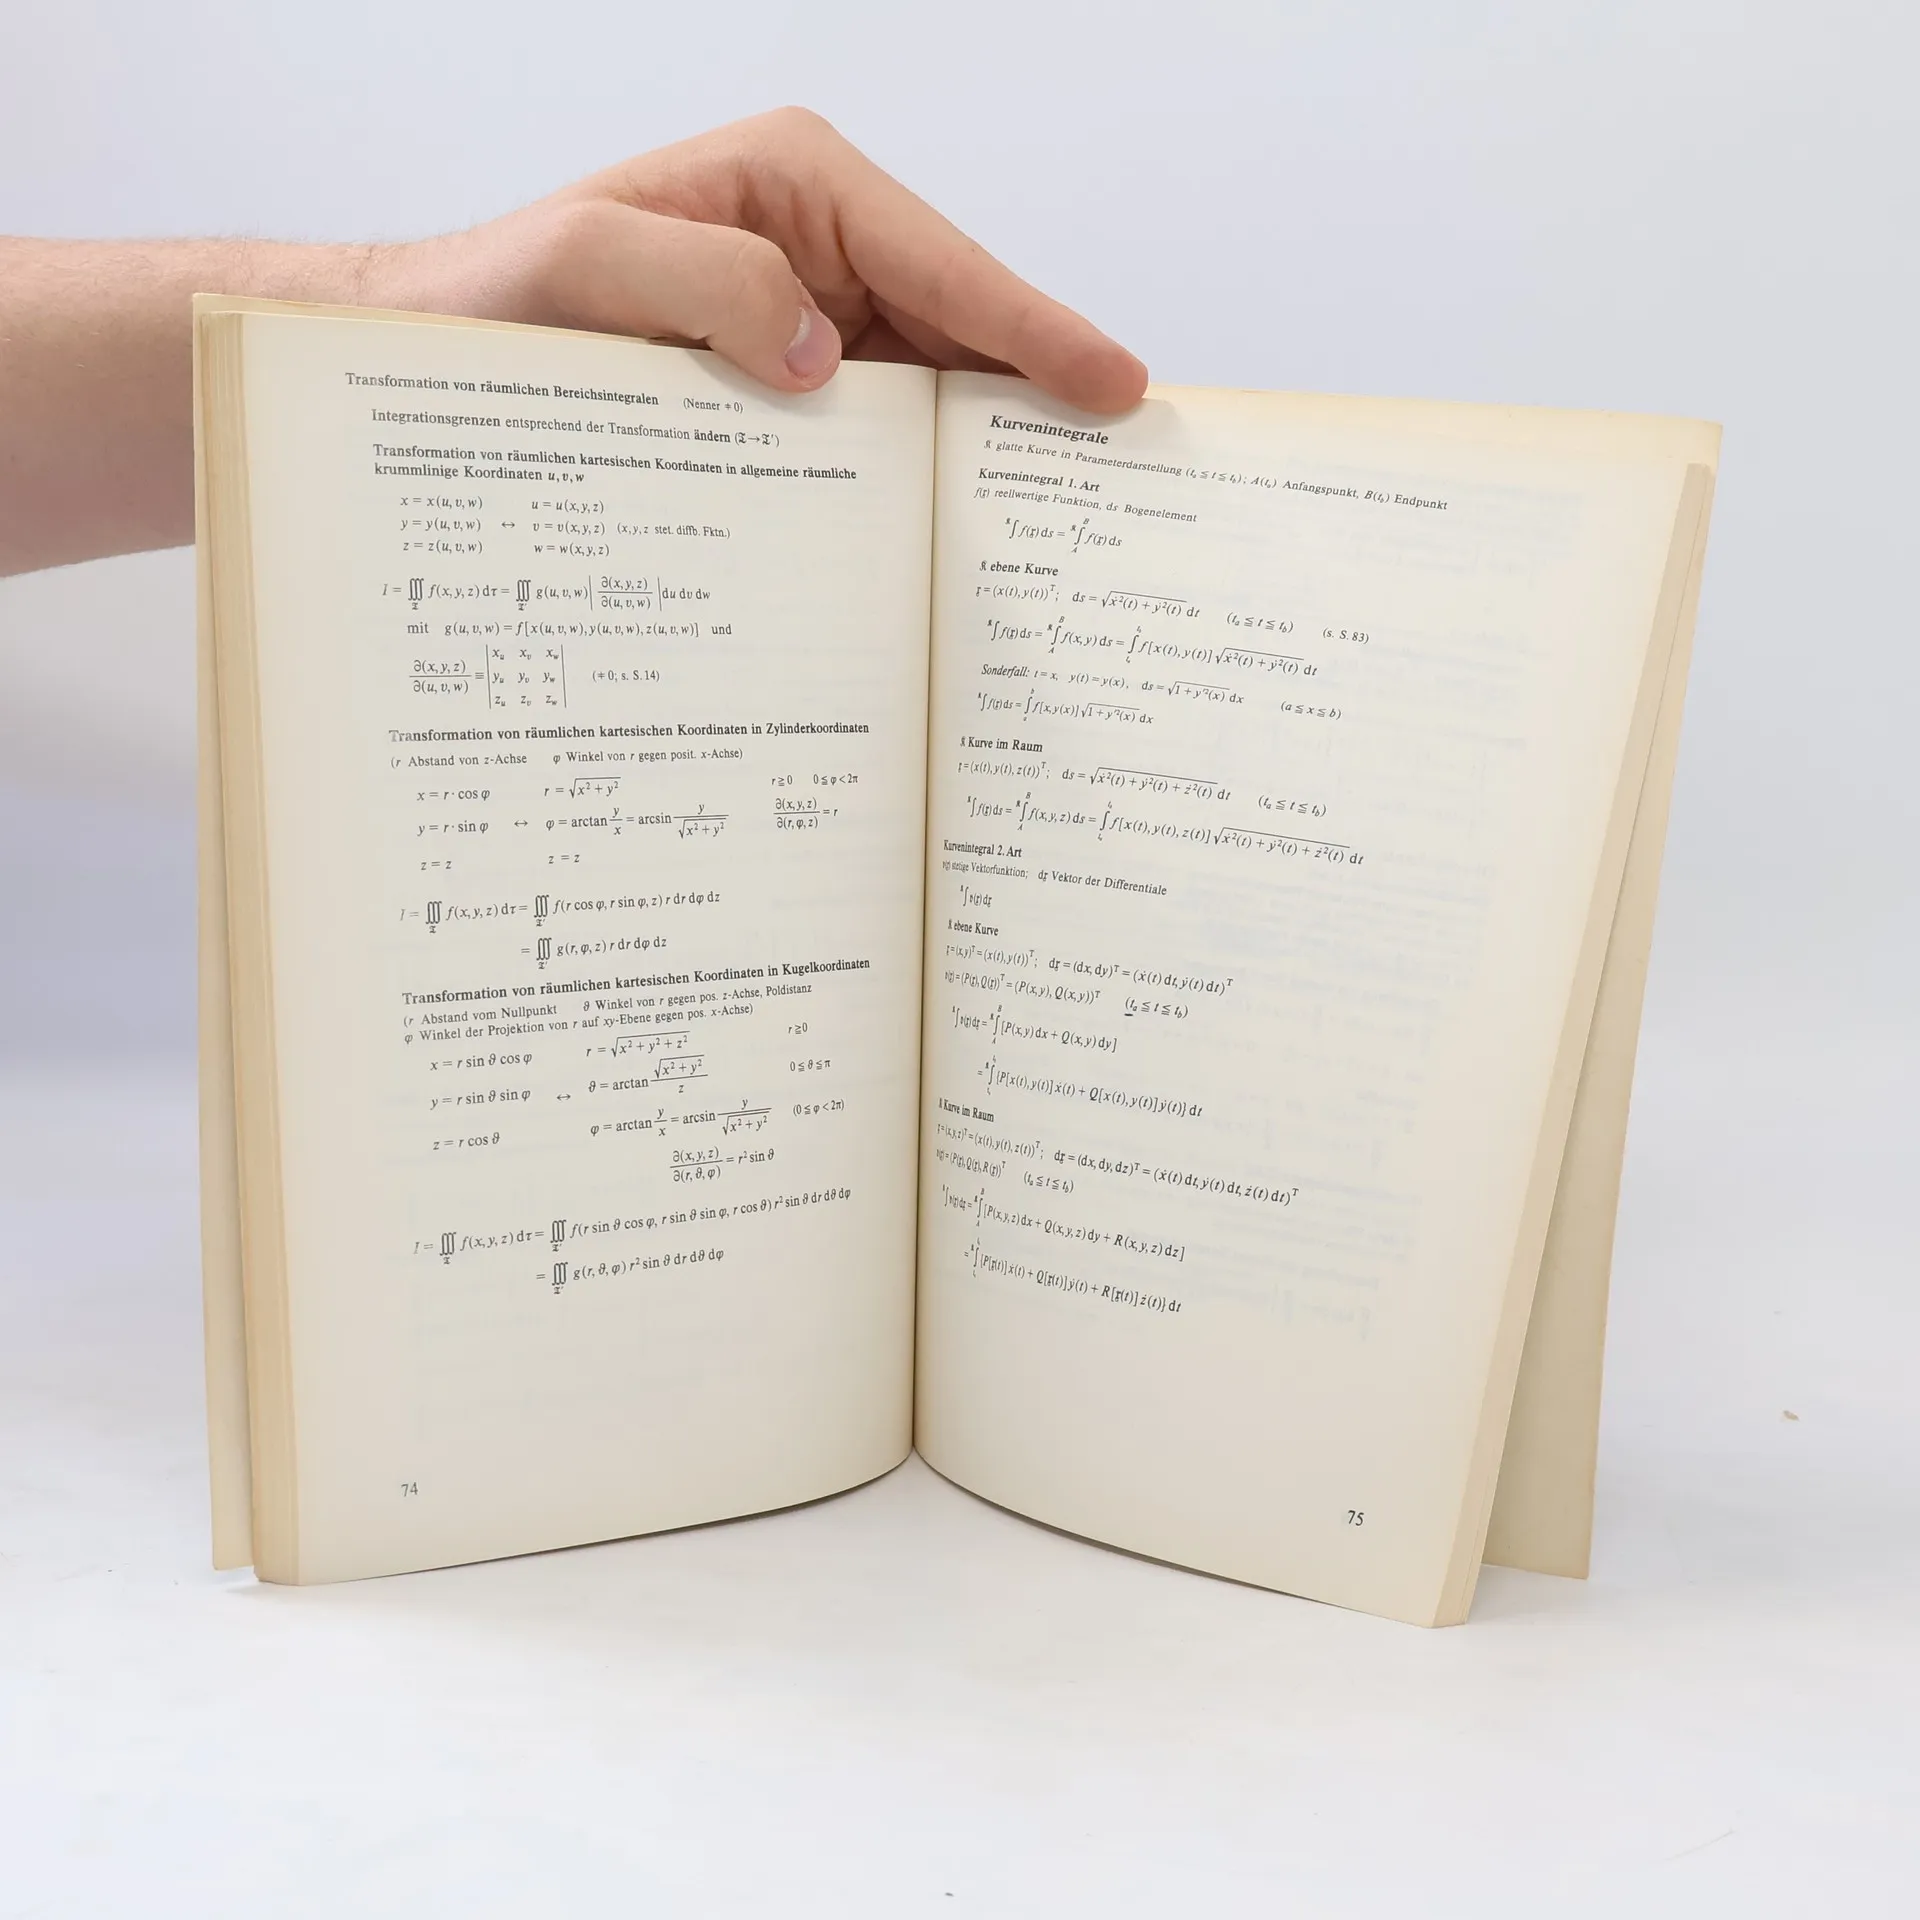 Transformation von räumlichen Bereichsintegralen (Nenner ≠ 0)
Integrationsgrenzen entsprechend der Transformation ändern (𝔗→𝔗′)
Transformation von räumlichen kartesischen Koordinaten in allgemeine räumliche
krummlinige Koordinaten u, v, w
x = x(u, v, w) u = u(x, y, z)
y = y(u, v, w) ↔ v = v(x, y, z) (x, y, z stet. diffb. Fktn.)
z = z(u, v, w) w = w(x, y, z)
I = ∭_𝔗 f(x, y, z) dτ = ∭_𝔗′ g(u, v, w) | ∂(x, y, z) / ∂(u, v, w) | du dv dw
mit g(u, v, w) = f[x(u, v, w), y(u, v, w), z(u, v, w)] und
∂(x, y, z) / ∂(u, v, w) ≡ | x_u x_v x_w |
| y_u y_v y_w | (≠ 0; s. S. 14)
| z_u z_v z_w |
Transformation von räumlichen kartesischen Koordinaten in Zylinderkoordinaten
(r Abstand von z-Achse φ Winkel von r gegen posit. x-Achse)
x = r · cos φ r = √(x² + y²) r ≧ 0 0 ≦ φ < 2π
y = r · sin φ ↔ φ = arctan y/x = arcsin y/√(x² + y²) ∂(x, y, z)/∂(r, φ, z) = r
z = z z = z
I = ∭_𝔗 f(x, y, z) dτ = ∭_𝔗′ f(r cos φ, r sin φ, z) r dr dφ dz
= ∭_𝔗′ g(r, φ, z) r dr dφ dz
Transformation von räumlichen kartesischen Koordinaten in Kugelkoordinaten
(r Abstand vom Nullpunkt ϑ Winkel von r gegen pos. z-Achse, Poldistanz
φ Winkel der Projektion von r auf xy-Ebene gegen pos. x-Achse)
x = r sin ϑ cos φ r = √(x² + y² + z²) r ≧ 0
y = r sin ϑ sin φ ↔ ϑ = arctan √(x² + y²)/z 0 ≦ ϑ ≦ π
z = r cos ϑ φ = arctan y/x = arcsin y/√(x² + y²) (0 ≦ φ < 2π)
∂(x, y, z)/∂(r, ϑ, φ) = r² sin ϑ
I = ∭_𝔗 f(x, y, z) dτ = ∭_𝔗′ f(r sin ϑ cos φ, r sin ϑ sin φ, r cos ϑ) r² sin ϑ dr dϑ dφ
= ∭_𝔗′ g(r, ϑ, φ) r² sin ϑ dr dϑ dφ
74
Kurvenintegrale
𝔎 glatte Kurve in Parameterdarstellung (t_a ≦ t ≦ t_b); A(t_a) Anfangspunkt, B(t_b) Endpunkt
Kurvenintegral 1. Art
f(𝔵) reellwertige Funktion, ds Bogenelement
^𝔎∫ f(𝔵) ds = ^𝔎∫_A^B f(𝔵) ds
𝔎 ebene Kurve
𝔵 = (x(t), y(t))^T; ds = √(ẋ²(t) + ẏ²(t)) dt (t_a ≦ t ≦ t_b) (s. S. 83)
^𝔎∫ f(𝔵) ds = ^𝔎∫_A^B f(x, y) ds = ∫_{t_a}^{t_b} f[x(t), y(t)] √(ẋ²(t) + ẏ²(t)) dt
Sonderfall: t = x, y(t) = y(x), ds = √(1 + y′²(x)) dx (a ≦ x ≦ b)
^𝔎∫ f(𝔵) ds = ∫_a^b f[x, y(x)] √(1 + y′²(x)) dx
𝔎 Kurve im Raum
𝔵 = (x(t), y(t), z(t))^T; ds = √(ẋ²(t) + ẏ²(t) + ż²(t)) dt (t_a ≦ t ≦ t_b)
^𝔎∫ f(𝔵) ds = ^𝔎∫_A^B f(x, y, z) ds = ∫_{t_a}^{t_b} f[x(t), y(t), z(t)] √(ẋ²(t) + ẏ²(t) + ż²(t)) dt
Kurvenintegral 2. Art
𝔳(𝔵) stetige Vektorfunktion; d𝔵 Vektor der Differentiale
^𝔎∫ 𝔳(𝔵) d𝔵
𝔎 ebene Kurve
𝔵 = (x, y)^T = (x(t), y(t))^T; d𝔵 = (dx, dy)^T = (ẋ(t) dt, ẏ(t) dt)^T
𝔳(𝔵) = (P(𝔵), Q(𝔵))^T = (P(x, y), Q(x, y))^T (t_a ≦ t ≦ t_b)
^𝔎∫ 𝔳(𝔵) d𝔵 = ^𝔎∫_A^B [P(x, y) dx + Q(x, y) dy]
= ^𝔎∫_{t_a}^{t_b} {P[x(t), y(t)] ẋ(t) + Q[x(t), y(t)] ẏ(t)} dt
𝔎 Kurve im Raum
𝔵 = (x, y, z)^T = (x(t), y(t), z(t))^T; d𝔵 = (dx, dy, dz)^T = (ẋ(t) dt, ẏ(t) dt, ż(t) dt)^T
𝔳(𝔵) = (P(𝔵), Q(𝔵), R(𝔵))^T (t_a ≦ t ≦ t_b)
^𝔎∫ 𝔳(𝔵) d𝔵 = ^𝔎∫_A^B [P(x, y, z) dx + Q(x, y, z) dy + R(x, y, z) dz]
= ^𝔎∫_{t_a}^{t_b} {P[𝔵(t)] ẋ(t) + Q[𝔵(t)] ẏ(t) + R[𝔵(t)] ż(t)} dt
75